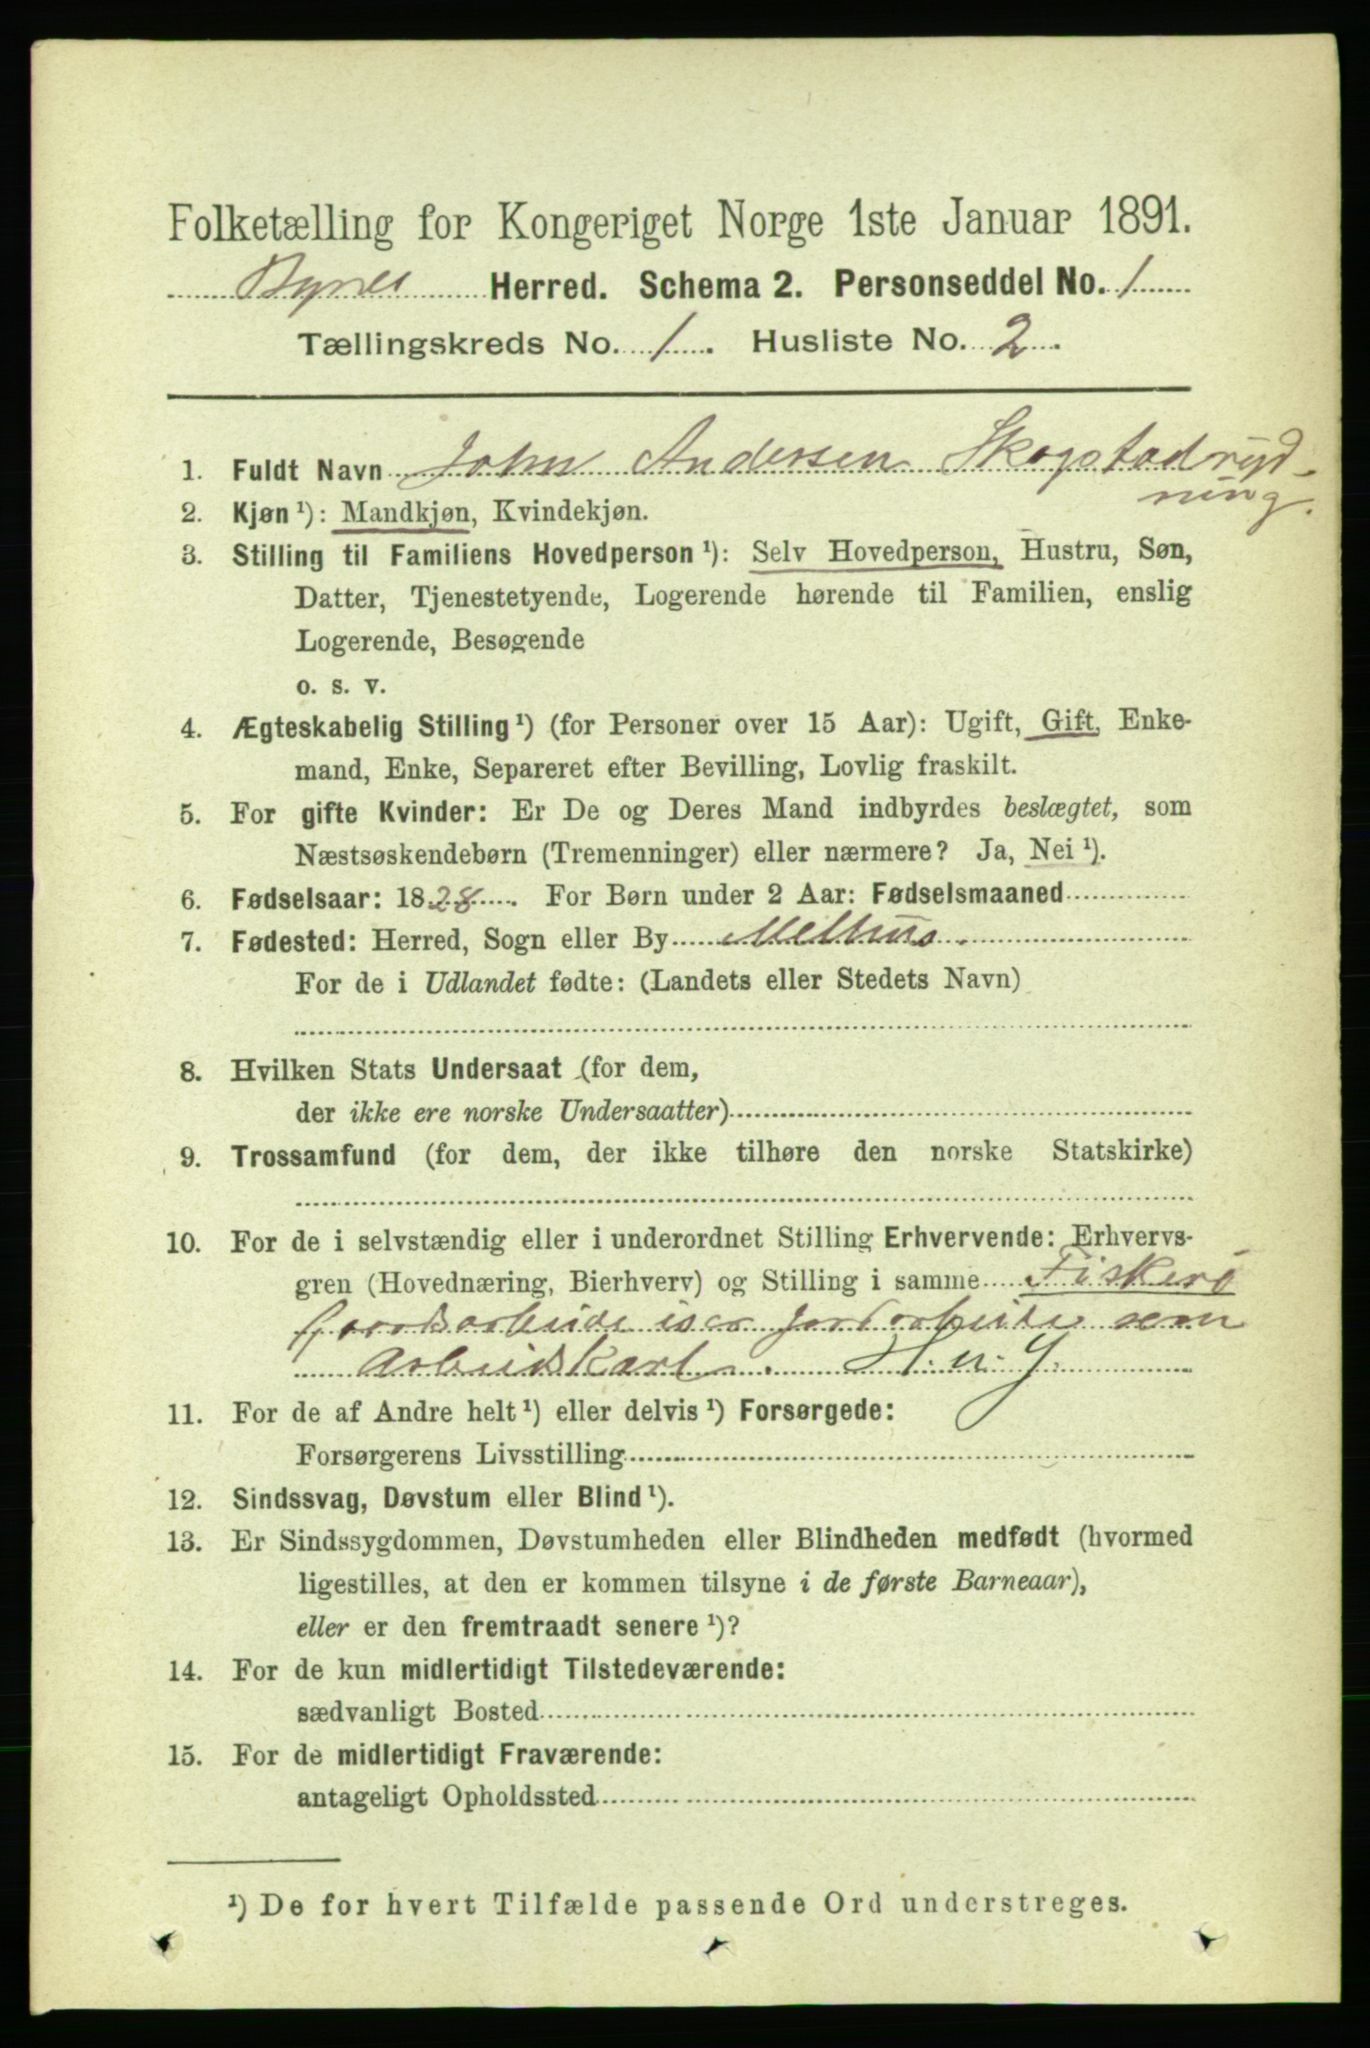 Folketælling for Kongeriget Norge 1ste Januar 1891.
Bynes Herred. Schema 2. Personseddel No. 1
Tællingskreds No. 1. Husliste No. 2.
1. Fuldt Navn John Andersen Skogstadryd-
ning.
2. Kjøn ¹): Mandkjøn, Kvindekjøn.
3. Stilling til Familiens Hovedperson ¹): Selv Hovedperson, Hustru, Søn,
Datter, Tjenestetyende, Logerende hørende til Familien, enslig
Logerende, Besøgende
o. s. v.
4. Ægteskabelig Stilling ¹) (for Personer over 15 Aar): Ugift, Gift, Enke-
mand, Enke, Separeret efter Bevilling, Lovlig fraskilt.
5. For gifte Kvinder: Er De og Deres Mand indbyrdes beslægtet, som
Næstsøskendebørn (Tremenninger) eller nærmere? Ja, Nei ¹).
6. Fødselsaar: 1828. For Børn under 2 Aar: Fødselsmaaned
7. Fødested: Herred, Sogn eller By Melhus.
For de i Udlandet fødte: (Landets eller Stedets Navn)
8. Hvilken Stats Undersaat (for dem,
der ikke ere norske Undersaatter)
9. Trossamfund (for dem, der ikke tilhøre den norske Statskirke)
10. For de i selvstændig eller i underordnet Stilling Erhvervende: Erhvervs-
gren (Hovednæring, Bierhverv) og Stilling i samme Fiskeri
Gaardsarbeide især Jordarbeide som
Arbeidskarl. H. n. G.
11. For de af Andre helt ¹) eller delvis ¹) Forsørgede:
Forsørgerens Livsstilling
12. Sindssvag, Døvstum eller Blind ¹).
13. Er Sindssygdommen, Døvstumheden eller Blindheden medfødt (hvormed
ligestilles, at den er kommen tilsyne i de første Barneaar),
eller er den fremtraadt senere ¹)?
14. For de kun midlertidigt Tilstedeværende:
sædvanligt Bosted
15. For de midlertidigt Fraværende:
antageligt Opholdssted
¹) De for hvert Tilfælde passende Ord understreges.